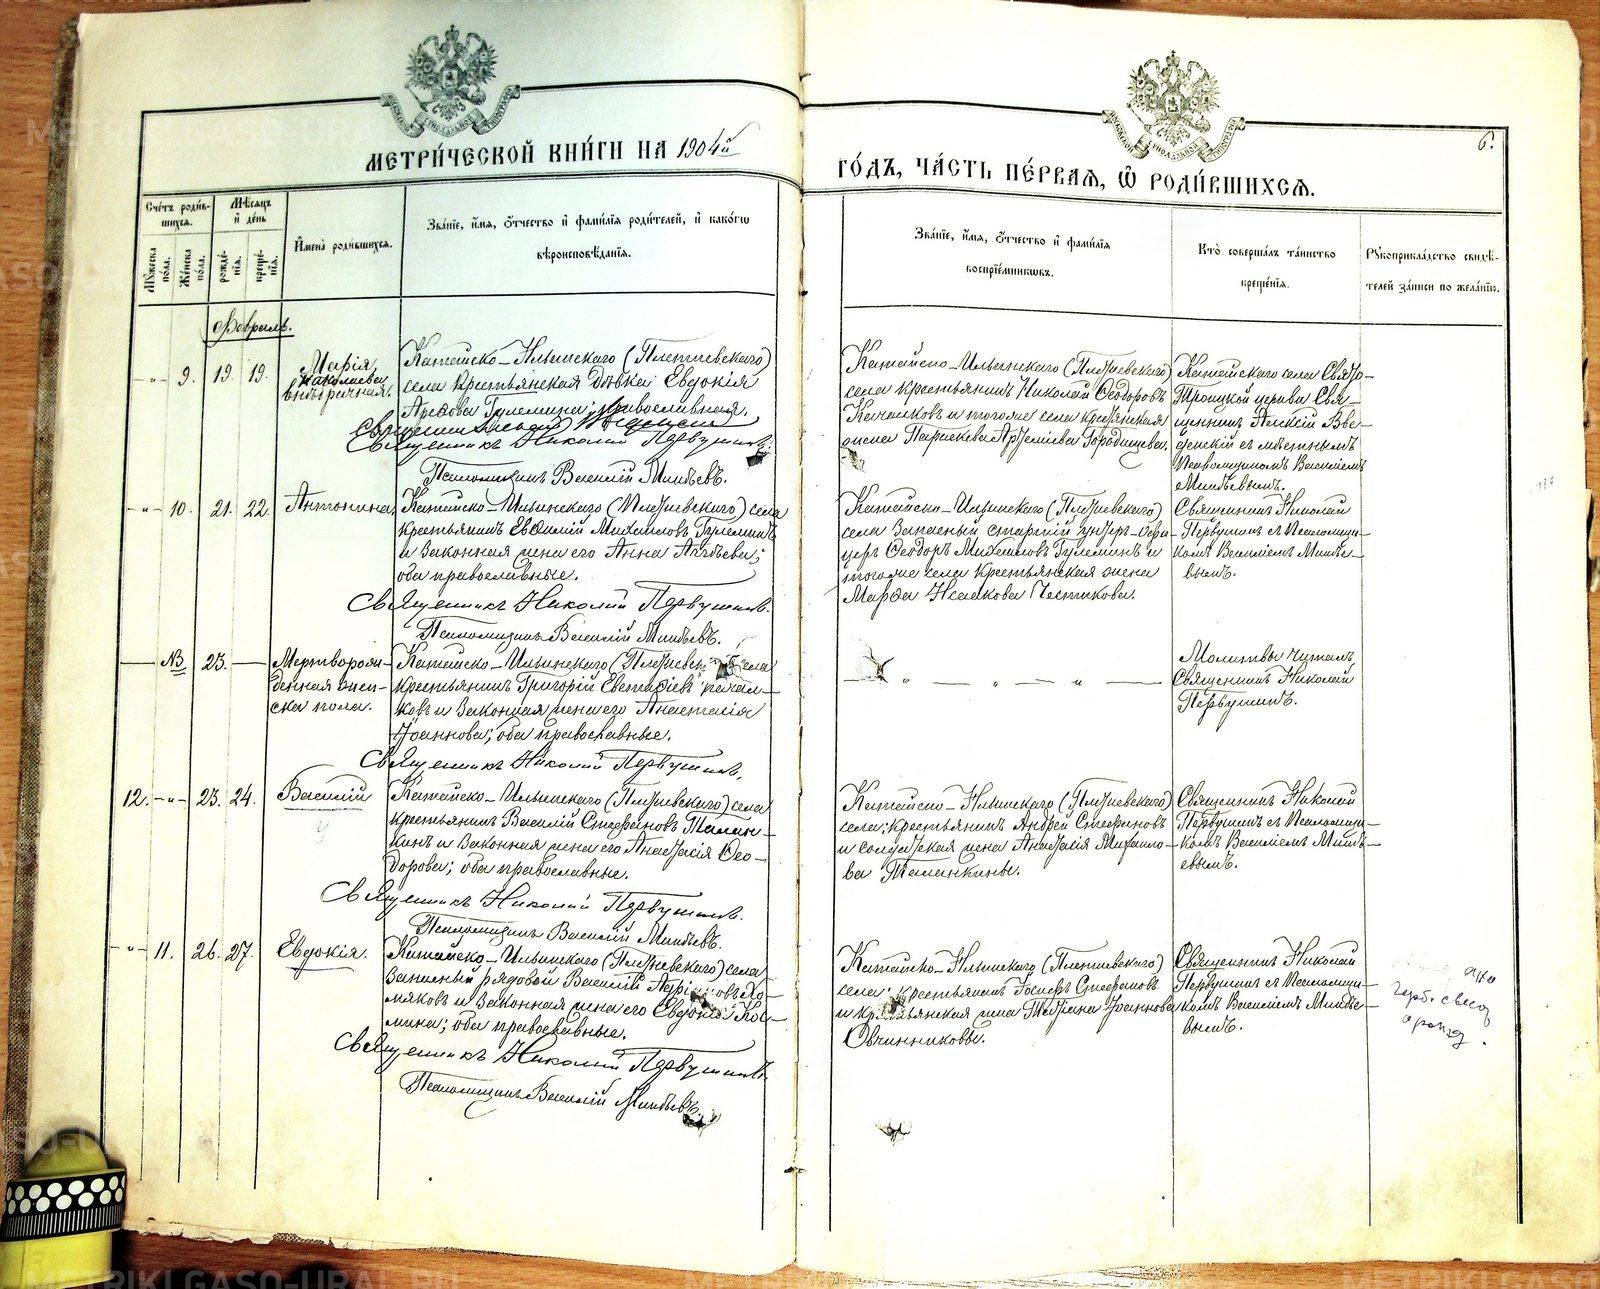 МЕТРИ́ЧЕСКОЙ КНИ́ГИ НА 1904й
ГО́ДЪ, ЧА́СТЬ ПЕ́РВАѦ, Ѽ РОДИ́ВШИХСѦ.
6.
Сче́тъ роди́в-
шихсѧ.
Мѣ́сѧцъ
и҆ де́нь
Мꙋ́жеска
по́ла.
Же́нска
по́ла.
рожде́-
нїѧ.
креще́-
нїѧ.
И҆мена̀ роди́вшихсѧ.
Зва́нїе, и҆́мѧ, ѻ҆́тчество и҆ фами́лїѧ роди́телей, и҆ како́гѡ
вѣроисповѣ́данїѧ.
Зва́нїе, и҆́мѧ, ѻ҆́тчество и҆ фами́лїѧ
воспрїе́мникѡвъ.
Кто̀ соверша́лъ та́инство
креще́нїѧ.
Рꙋкоприкла́дство свидѣ́-
телей за́писи по жела́нїю.
Февраль.
-"- 9. 19. 19.
Марія
Николаева
внѣбрачная.
Катайско-Ильинскаго (Плетневскаго)
села крестьянская дѣвка Евдокія
православная.
Священникъ Николай Первушинъ.
Псаломщикъ Василій Минѣевъ.
Катайско-Ильинскаго (Плетневскаго)
села крестьянинъ Николай Ѳеодоровъ
и тогоже села крестьянская
жена Параскева Артеміева Городищева.
Катайскаго села Свято-
Троицкой церкви Свя-
щенникъ Алексій Вве-
денскій съ мѣстнымъ
Псаломщикомъ Василіемъ
Минѣевымъ.
-"- 10. 21. 22.
Антонина
Катайско-Ильинскаго (Плетневскаго) села
крестьянинъ Евѳимій Михаиловъ Гулеминъ
и законная жена его Анна
оба православные.
Священникъ Николай Первушинъ.
Псаломщикъ Василій Минѣевъ.
Катайско-Ильинскаго (Плетневскаго)
села Запасный старшій унтеръ-офи-
церъ Ѳеодоръ Михаиловъ Гулеминъ и
тогоже села крестьянская жена
Марѳа Исаакова Пестикова.
Священникъ Николай
Первушинъ съ Псаломщи-
комъ Василіемъ Минѣе-
вымъ.
№ 23.
Мертворож-
денная жен-
ска пола.
Катайско-Ильинскаго села
крестьянинъ Григорій Евстафіевъ
ковъ и законная жена его Анастасія
Іоаннова; оба православные.
Священникъ Николай Первушинъ.
" - " - "
Молитвы читалъ
Священникъ Николай
Первушинъ.
12. -"- 23. 24.
Василій
Катайско-Ильинскаго (Плетневскаго) села
крестьянинъ Василій Стефановъ Талан-
кинъ и законная жена его Анастасія Ѳео-
дорова; оба православные.
Священникъ Николай Первушинъ.
Псаломщикъ Василій Минѣевъ.
Катайско-Ильинскаго (Плетневскаго)
села: крестьянинъ Андрей Стефановъ
и солдатская жена Анастасія Михаило-
ва Таланкины.
Священникъ Николай
Первушинъ съ Псаломщи-
комъ Василіемъ Минѣ-
евымъ.
-"- 11. 26. 27.
Евдокія.
Катайско-Ильинскаго (Плетневскаго) села
Запасный рядовой Василій Хо-
мяковъ и законная жена его Евдокія Кос-
мина; оба православные.
Священникъ Николай Первушинъ.
Псаломщикъ Василій Минѣевъ.
Катайско-Ильинскаго (Плетневскаго)
села: крестьянинъ Іосифъ Стефановъ
и крестьянская жена Татіана Іоаннова
Овчинниковы.
Священникъ Николай
Первушинъ съ Псаломщи-
комъ Василіемъ Минѣе-
вымъ.
METRIKI.GASO-URAL.RU